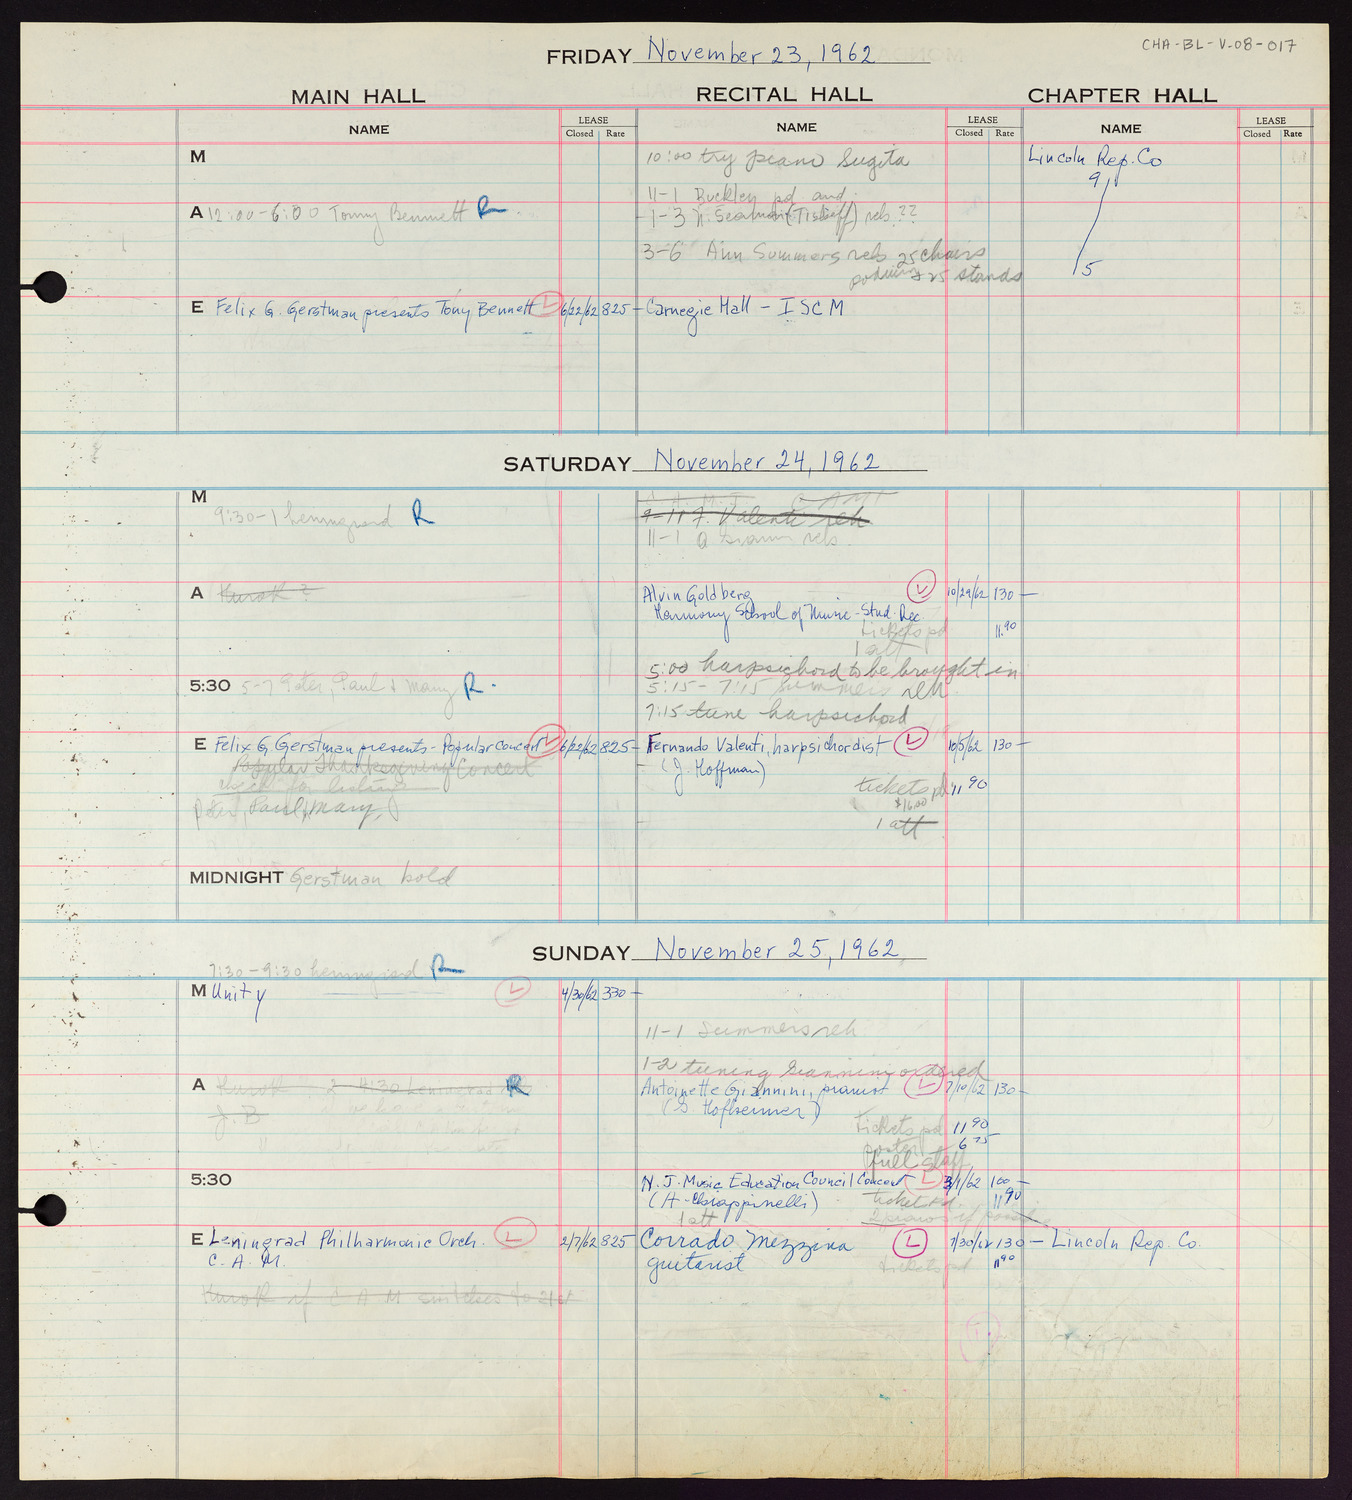 CHA-BL-V-08-017
FRIDAY November 23, 1962
MAIN HALL RECITAL HALL CHAPTER HALL
NAME LEASE Closed Rate NAME LEASE Closed Rate NAME LEASE Closed Rate
M
10:00 try piano Sugita
Lincoln Rep. Co
9
11-1 Buckley pd and
A 12:00-6:00 Tonny Bennett R
1-3 N. Seaman (Tisleff) reh ??
3-6 Ann Summers reh 25 chairs
podium & 25 stands
5
E Felix G. Gerstman presents Tony Bennett L 6/22/62 825-
Carnegie Hall - ISCM
SATURDAY November 24, 1962
M
9:30-1 Lenningrad R
9-11 F. Valenti reh
11-1 reh.
A Hurok ?
Alvin Goldberg L 10/29/62 130-
Harmony School of Music - Stud. Rec.
tickets pd 11.90
1 att
5:00 harpsichord to be brought in
5:30 5-7 Peter, Paul & Mary R.
5:15-7:15 Summers reh
7:15 tune harpsichord
E Felix G. Gerstman presents - Popular concert L 6/22/62 825-
Fernando Valenti, harpsichordist L 10/5/62 130-
Popular Thanksgiving Concert
(J. Hoffman)
check for listing
tickets pd 11 90
$16.50
Peter, Paul, Mary,
1 att
MIDNIGHT Gerstman hold
SUNDAY November 25, 1962
7:30-9:30 Lenningrad R
M Unity L 4/30/62 330-
11-1 Summers reh
1-2 tuning Giannini ordered
A Hurok 2-4:30 Leningrad R
Antoinette Giannini, pianist L 7/10/62 130-
J. B
(S Hofheimer)
tickets pd 11 90
poster 6 75
full staff
5:30
N.J. Music Education Council Concert L 3/1/62 100-
(A. Chiappinelli) ticket pd. 11 90
1 att 2 pianos if possible
E Leningrad Philharmonic Orch. L 2/7/62 825
Corrado Mezzina L 7/30/62 130-
Lincoln Rep. Co.
C. A. M.
guitarist
tickets pd 11 90
Hurok if C A M switches to 21st